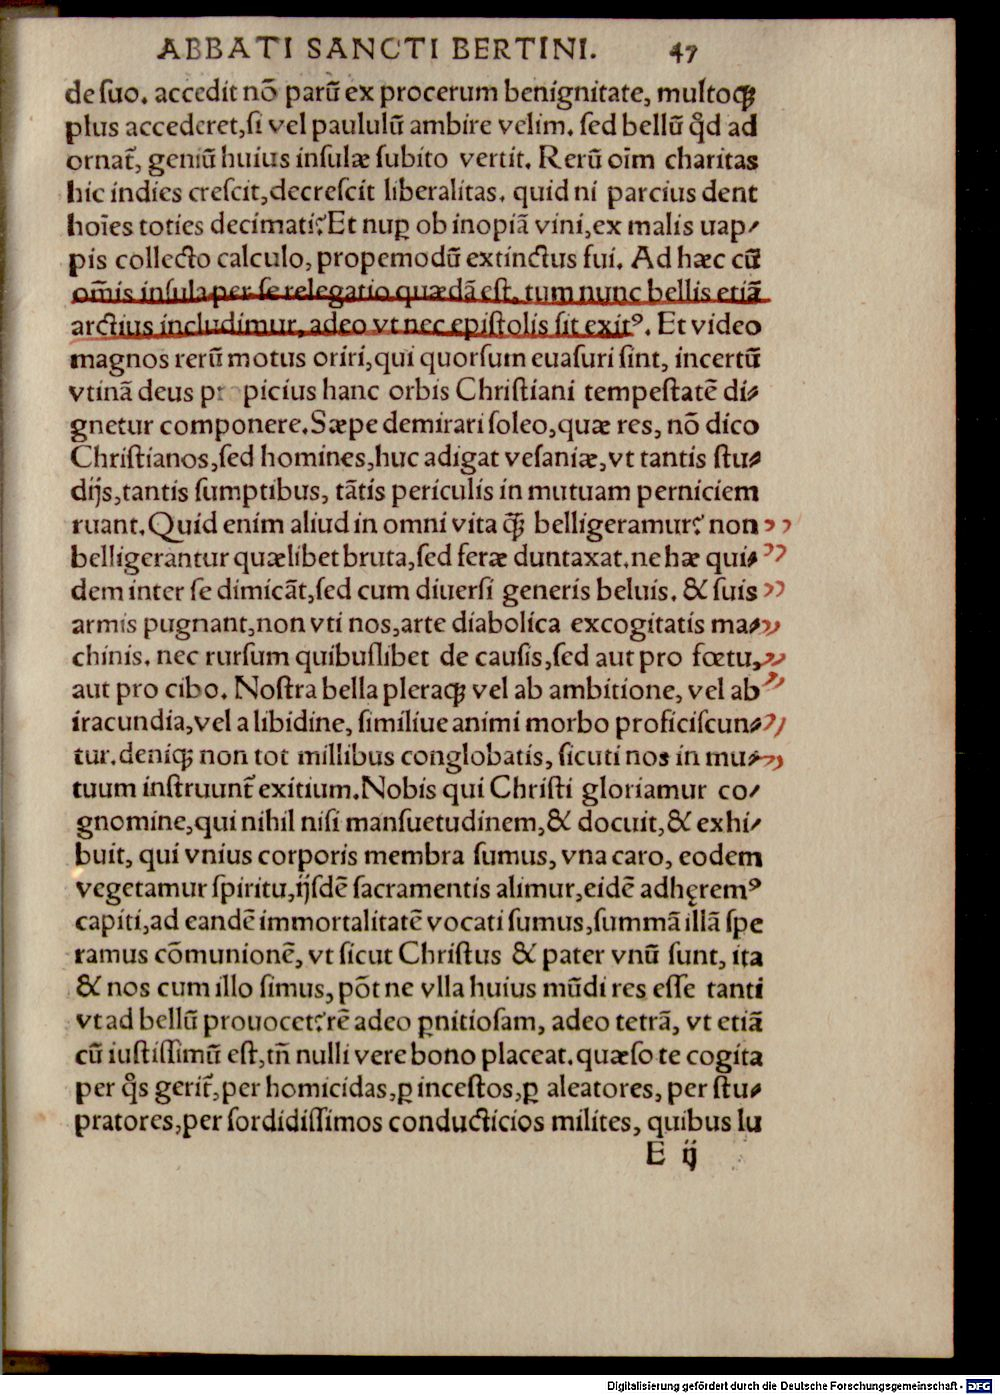 ABBATI SANCTI BERTINI. 47
de ſuo. accedit nō parū ex procerum benignitate, multoqꝫ
plus accederet,ſi vel paululū ambire velim. ſed bellū qd̓ ad
ornat̄, geniū huius inſulæ ſubito vertit. Rerū oīm charitas
hic indies creſcit,decreſcit liberalitas. quid ni parcius dent
hoīes toties decimati? Et nuꝑ ob inopiā vini,ex malis uap-
pis collecto calculo, propemodū extinctus fui. Ad hæc cū
om̄is inſula per ſe relegatio quædā eſt. tum nunc bellis etiā
arctius includimur, adeo vt nec epiſtolis ſit exitꝰ. Et video
magnos rerū motus oriri,qui quorſum euaſuri ſint, incertū
vtinā deus pr picius hanc orbis Chriſtiani tempeſtatē di-
gnetur componere. Sæpe demirari ſoleo,quæ res, nō dico
Chriſtianos,ſed homines,huc adigat veſaniæ,vt tantis ſtu-
dijs,tantis ſumptibus, tātis periculis in mutuam perniciem
ruant. Quid enim aliud in omni vita q̄ꝫ belligeramur? non ››
belligerantur quælibet bruta,ſed feræ duntaxat.ne hæ qui- ››
dem inter ſe dimicāt,ſed cum diuerſi generis beluis. & ſuis ››
armis pugnant,non vti nos,arte diabolica excogitatis ma- ››
chinis. nec rurſum quibuſlibet de cauſis,ſed aut pro fœtu, ››
aut pro cibo. Noſtra bella pleraqꝫ vel ab ambitione, vel ab ››
iracundia,vel a libidine, ſimiliue animi morbo proficiſcun- ››
tur.deniqꝫ non tot millibus conglobatis, ſicuti nos in mu- ››
tuum inſtruunt̄ exitium. Nobis qui Chriſti gloriamur co-
gnomine,qui nihil niſi manſuetudinem,& docuit,& exhi-
buit, qui vnius corporis membra ſumus, vna caro, eodem
vegetamur ſpiritu,ijſdē ſacramentis alimur,eidē adhęremꝰ
capiti,ad eandē immortalitatē vocati ſumus,ſummā illā ſpe
ramus cōmunionē, vt ſicut Chriſtus & pater vnū ſunt, ita
& nos cum illo ſimus, pōt ne vlla huius mūdi res eſſe tanti
vt ad bellū prouocet?rē adeo ꝑnitioſam, adeo tetrā, vt etiā
cū iuſtiſſimū eſt,tn̄ nulli vere bono placeat.quæſo te cogita
per q̓s gerit̄,per homicidas,ꝑ inceſtos,ꝑ aleatores, per ſtu-
pratores,per ſordidiſſimos conducticios milites, quibus lu
E ij
Digitalisierung gefördert durch die Deutsche Forschungsgemeinschaft - DFG